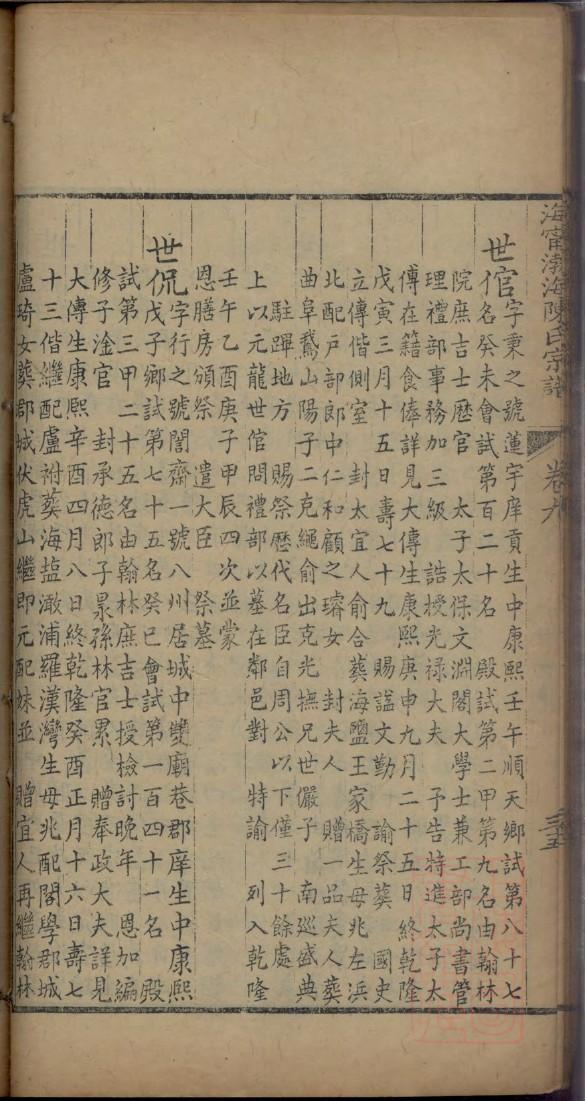 海甯渤海陳氏宗譜
卷九
三五
世倌字秉之號蓮宇庠貢生中康熙壬午順天鄉試第八十七
名癸未會試第百二十名　殿試第二甲第九名由翰林
院庶吉士歷官　太子太保文淵閣大學士兼工部尚書管
理禮部事務加三級　誥授光祿大夫　予告特進太子太
傅在籍食俸詳見大傳生康熙庚申九月二十五日終乾隆
戊寅三月十五日壽七十九　賜諡文勤　諭祭葬　國史
立傳偕側室　封太宜人俞合葬海鹽王家橋生母兆左浜
北配戶部郎中仁和顧之璿女　封夫人　贈一品夫人葬
曲阜鵞山陽子二克繩俞出克光撫兄世儼子　南巡盛典
駐蹕地方　賜祭歷代名臣自周公以下僅三十餘處
上以元龍世倌問禮部以墓在鄰邑對　特諭　列入乾隆
壬午乙酉庚子甲辰四次並蒙
恩膳房頒祭　遣大臣　祭墓
世侃字行之號誾齋一號八州居城中雙廟巷郡庠生中康熙
戊子鄉試第七十五名癸巳會試第一百四十一名　殿
試第三甲二十五名由翰林庶吉士授檢討晚年　恩加編
修子淦官　封承德郎子㬎孫林官累　贈奉政大夫詳見
大傳生康熙辛酉四月八日終乾隆癸酉正月十六日壽七
十三偕繼配盧祔葬海鹽澉浦羅漢灣生母兆配閣學郡城
盧琦女葬郡城伏虎山繼即元配妹並　贈宜人再繼翰林